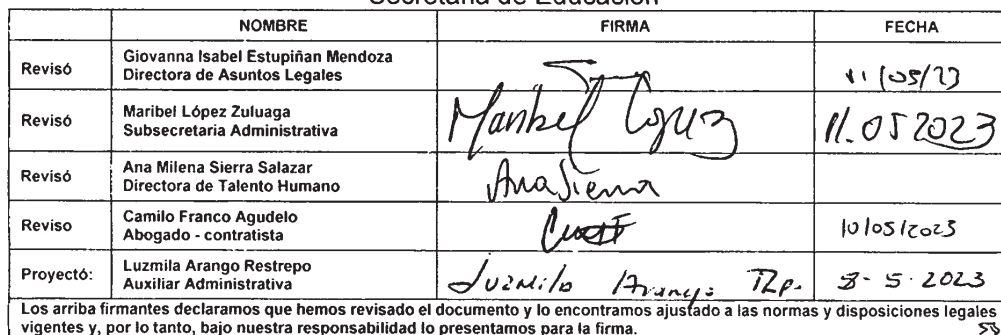 Secretaría de Educación
NOMBRE FIRMA FECHA
Revisó Giovanna Isabel Estupiñan Mendoza
Directora de Asuntos Legales 11/05/23
Revisó Maribel López Zuluaga
Subsecretaria Administrativa Maribel López 11.05 2023
Revisó Ana Milena Sierra Salazar
Directora de Talento Humano Ana Sierra
Reviso Camilo Franco Agudelo
Abogado - contratista 10/05/2023
Proyectó: Luzmila Arango Restrepo
Auxiliar Administrativa Luzmila Arango Rp. 8-5-2023
Los arriba firmantes declaramos que hemos revisado el documento y lo encontramos ajustado a las normas y disposiciones legales
vigentes y, por lo tanto, bajo nuestra responsabilidad lo presentamos para la firma.